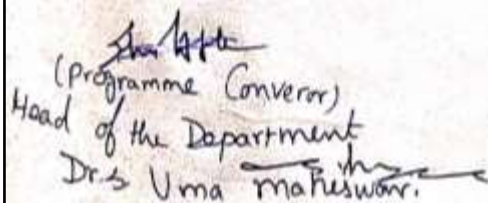 (Programme Converor)
Head of the Department
Dr. S Uma Maheswari.